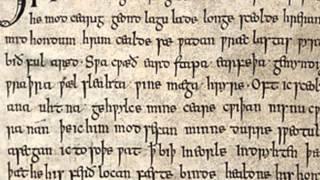 he mod cearig geond lagu lade longe sceolde hreran
mid hondum hrim cealde sæ wadan wræc lastas wyrd
bið ful aræd. Swa cwæð eard stapa earfeþa gemyndig
wraþra wæl sleahta wine mæga hryre. Oft ic sceolde
ana uhtna gehwylce mine ceare cwiþan nis nu cwic
ra nan þe ic him mod sefan minne durre sweotule
asecgan ic to soþe wat ꝥ biþ in eorle indryhten þeaw
þæt he his ferð locan fæste binde healdne his hord